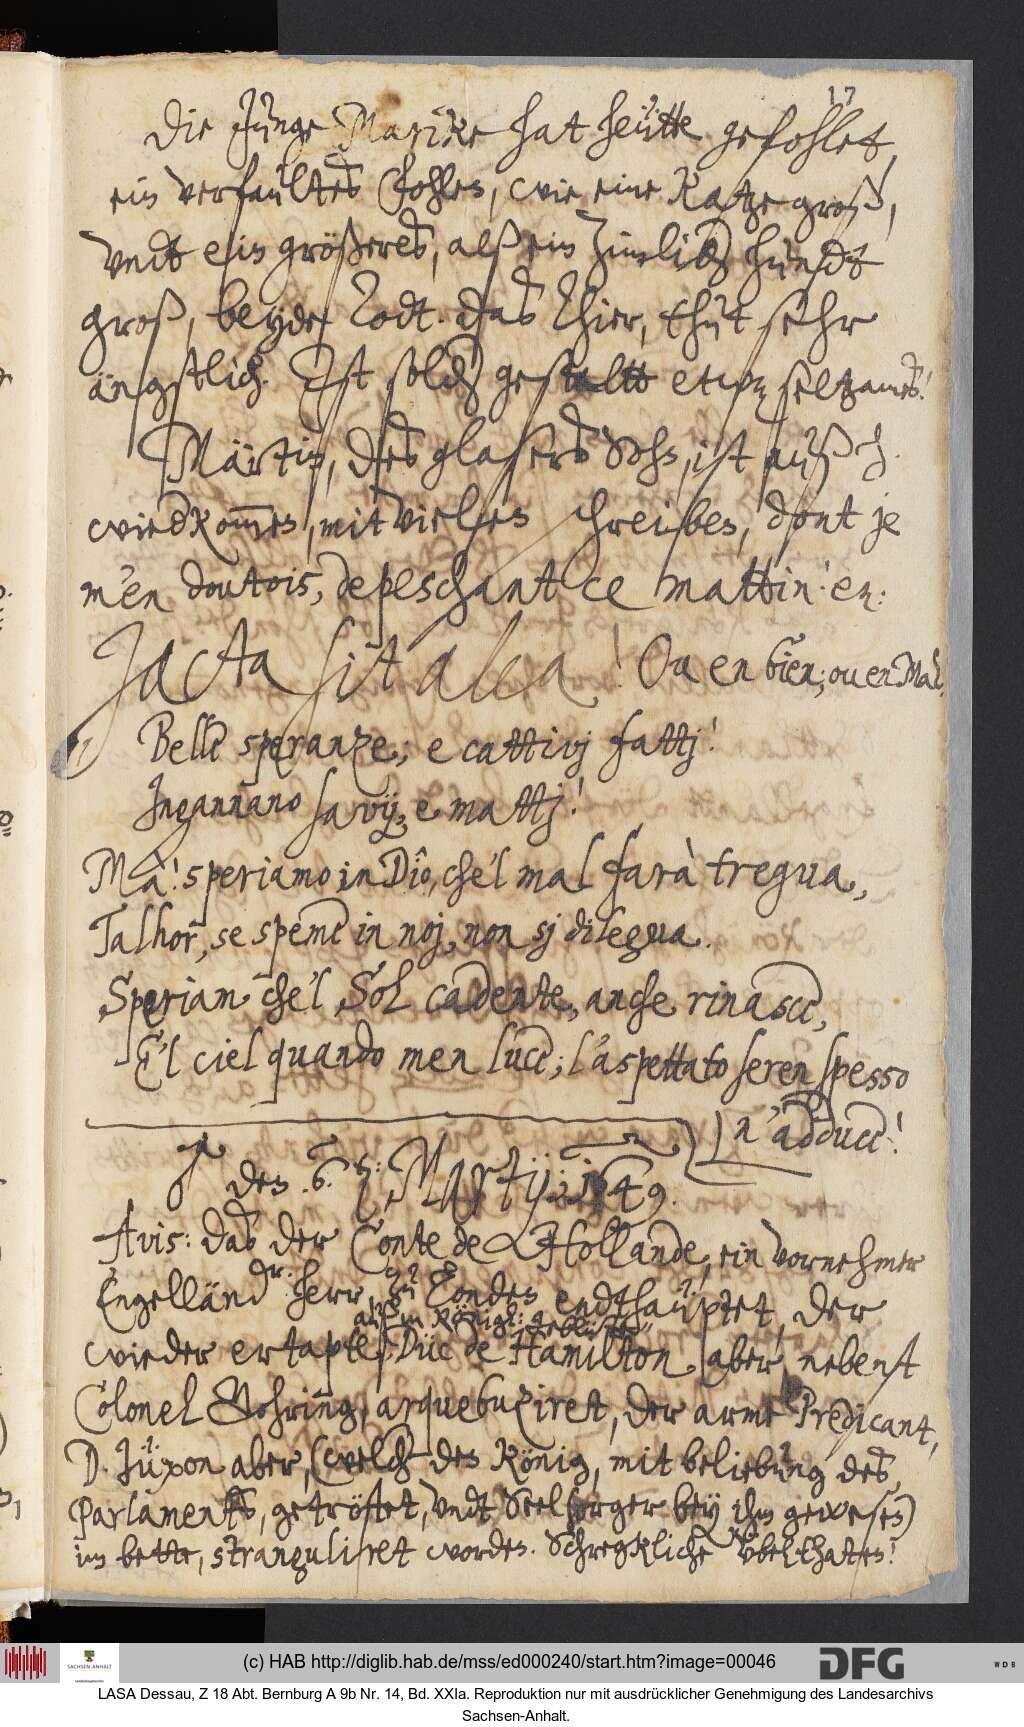 17
Die Junge Marike hat heütte gefohlet,
ein verfaultes Fohlen, wie eine Katze groß,
undt ein größeres, alß ein zimlich hundt
groß, beyde Todt. das Thier, thut sehr
ängstlich. Ist solch gestaltt etwz seltzames!
Märtin, des glasers Sohn, ist auß H.
wiedkommen, mit vielen schreiben, dont je
m'en doutois, depeschant ce mattin! en:
Jacta sit alea! Ou en bien; ou en Mal.
Belle speranze; e cattivj fattj!
Ingannano savij, e mattj!
Mà! speriamo in Dio, che'l mal farà tregua,
Talhor, se speme in noj, non sj dilegua.
Sperian che'l Sol cadente, anche rinasce,
E'l ciel quando men luce; l'aspettato seren spesso
n'adduce!
den 6. Martij: 1649.
Avis: das der Conte de Hollande, ein vornehmer
Engelländr. herr, zu Londen endthauptet, der
auß dem Königl: geblüte
wieder ertapte, Düc de Hamilton, aber nebenst
Colonel Bohring, arquebuziret, der arme Predicant,
D. Jüxon aber, (welch den König, mit beliebung des,
Parlaments, getröstet, undt Seelsorger bey ihm gewesen)
im bette, stranguliret worden. Schregkliche übelthaten!
(c) HAB http://diglib.hab.de/mss/ed000240/start.htm?image=00046
SACHSEN-ANHALT
DFG
WDB
LASA Dessau, Z 18 Abt. Bernburg A 9b Nr. 14, Bd. XXIa. Reproduktion nur mit ausdrücklicher Genehmigung des Landesarchivs
Sachsen-Anhalt.